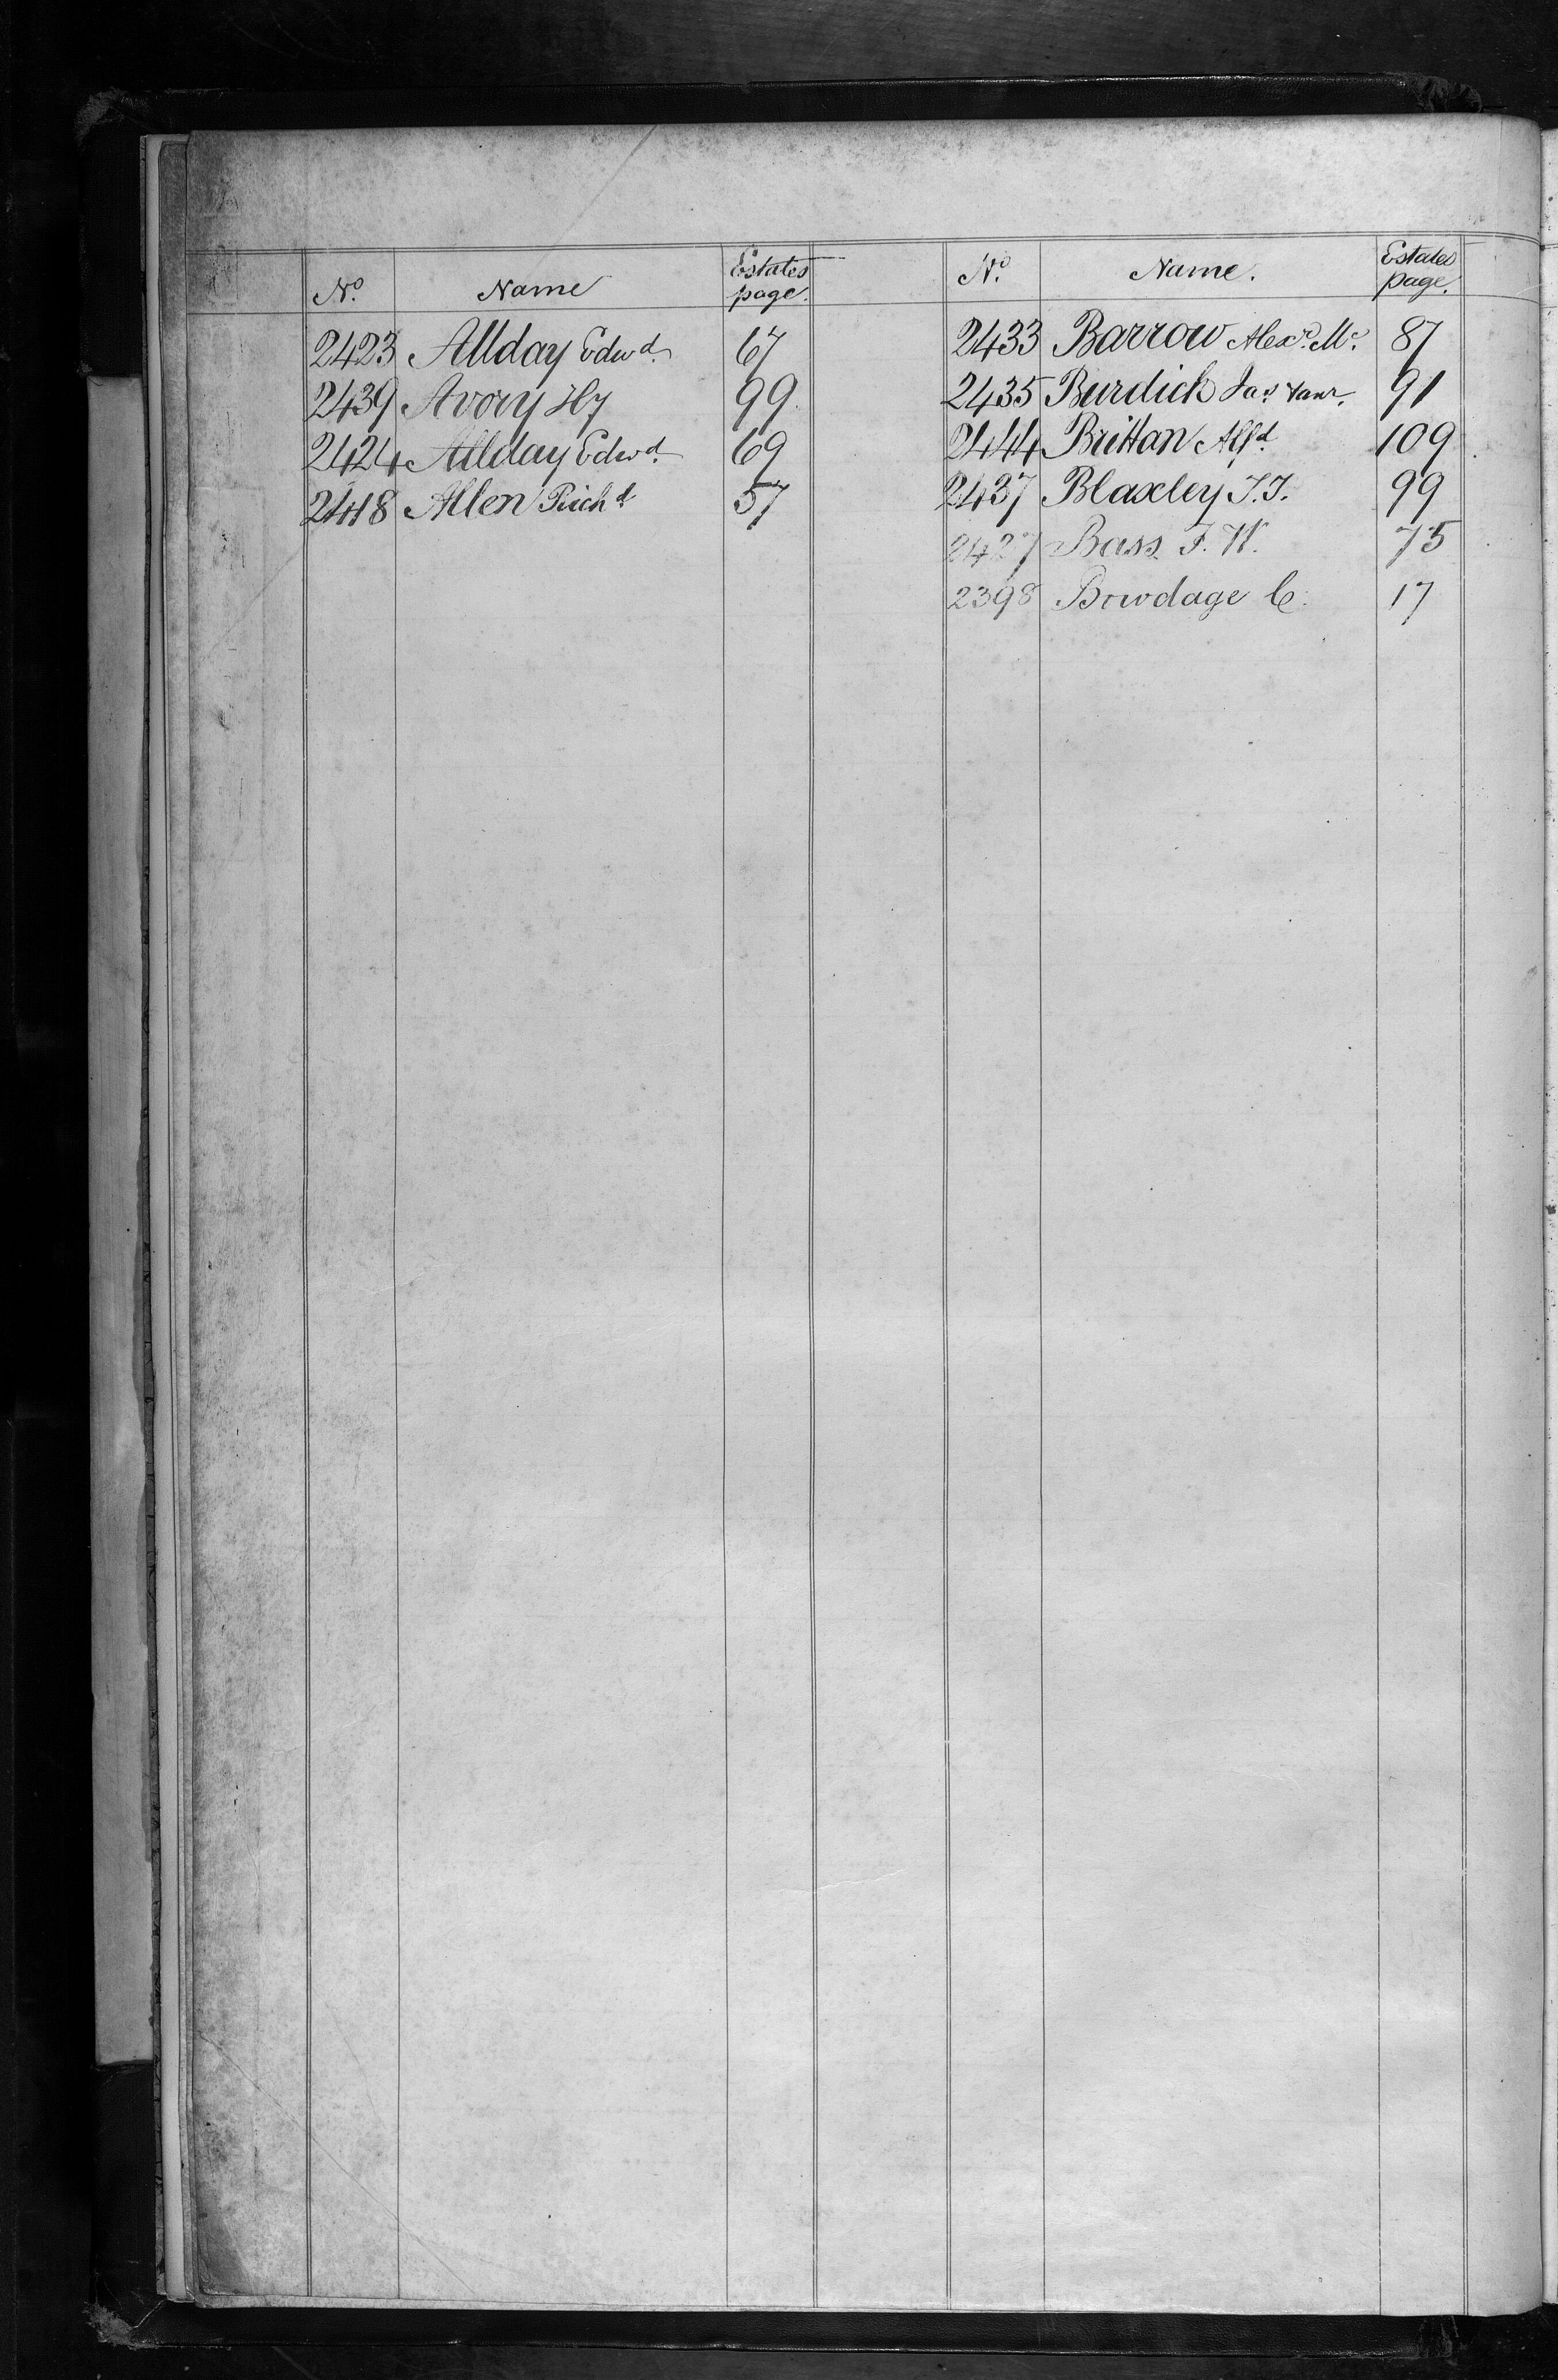 No. Name Estates page.
2423 Allday Edwd. 67
2439 Avory Hy 99
2424 Allday Edwd. 69
2418 Allen Richd. 57
No. Name. Estates page.
2433 Barrow Alexr. Mc. 87
2435 Burdick Jas 91
2444 Brittan Alfd. 109
2437 Blaxley J.J. 99
2427 Bass F. W. 75
2398 Bowdage C. 17